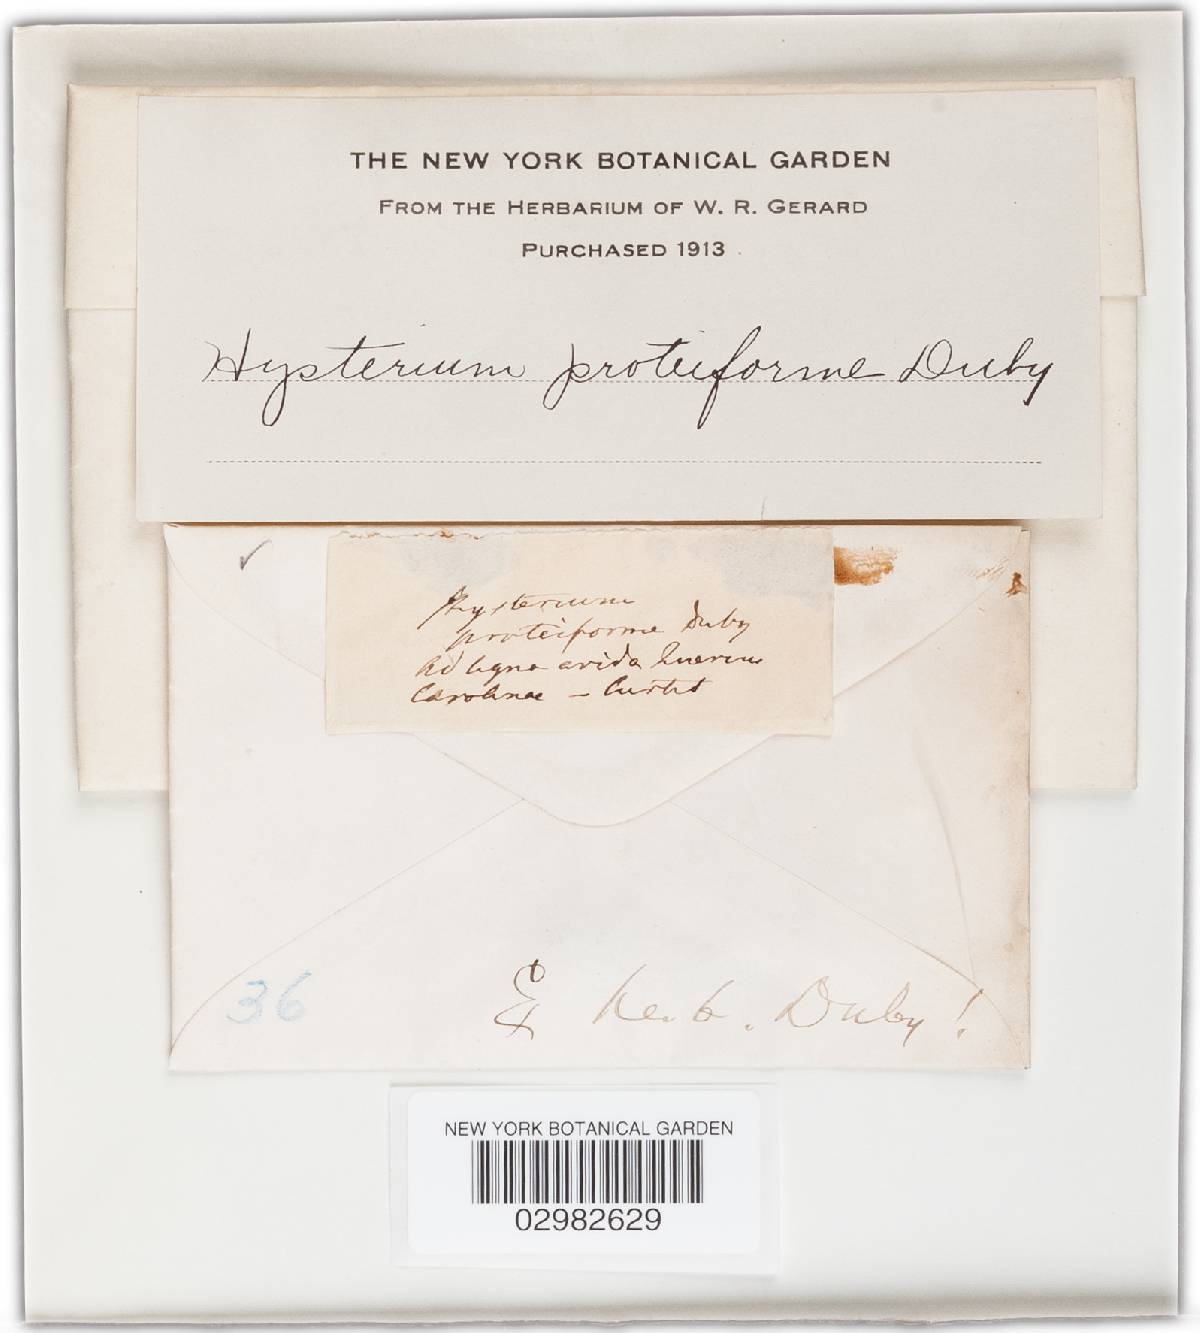 THE NEW YORK BOTANICAL GARDEN
FROM THE HERBARIUM OF W. R. GERARD
PURCHASED 1913
Hysterium proteiforme Duby
Hysterium
proteiforme Duby
Ad ligna arida Quercus
Carolinae – Curtis
36
Herb. Duby!
NEW YORK BOTANICAL GARDEN
02982629